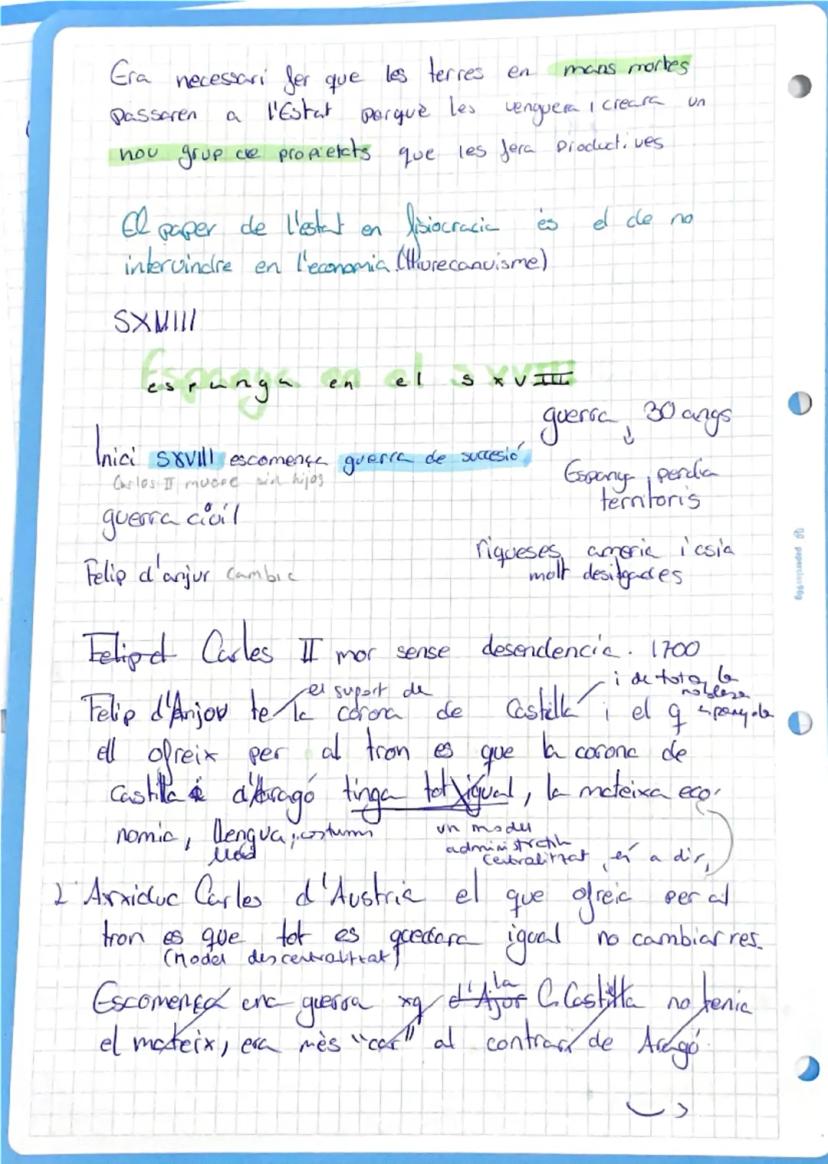 Era necessari fer que les terres en mans mortes
passaren a l'Estat perquè les venguera i creara un
nou grup de propietets que les fera productives
El paper de l'estat en fisiocracia és el de no
intervindre en l'economia (lliurecanvisme)
SXVIII
Espanya en el s XVIII
espanya en el s x v III
guerra, 30 anys
Inici SXVIII escomença guerra de succesió
Carles II muere sin hijos
Espanya, perdia
territoris
guerra civil
riqueses, america i asia
molt desitgades
Felip d'anjur cambic
Felip d Carles II mor sense desendencia. 1700
el suport de
i de tota la
noblesa
espanyola
Felip d'Anjou te la corona de Castella i el q
ell ofreix per al tron es que la corona de
Castilla i d'Aragó tinga tot igual, la mateixa eco-
nomia, llengua, costums
un model
administratiu
centralitzat, és a dir,
2 Arxiduc Carles d'Austria el que ofreix per al
tron es que tot es quedara igual no cambiar res.
(Model descentralitzat)
Escomença una guerra xq d'Ajor la C. Castilla no tenia
el mateix, era mès "car" al contrari de Aragó
papers